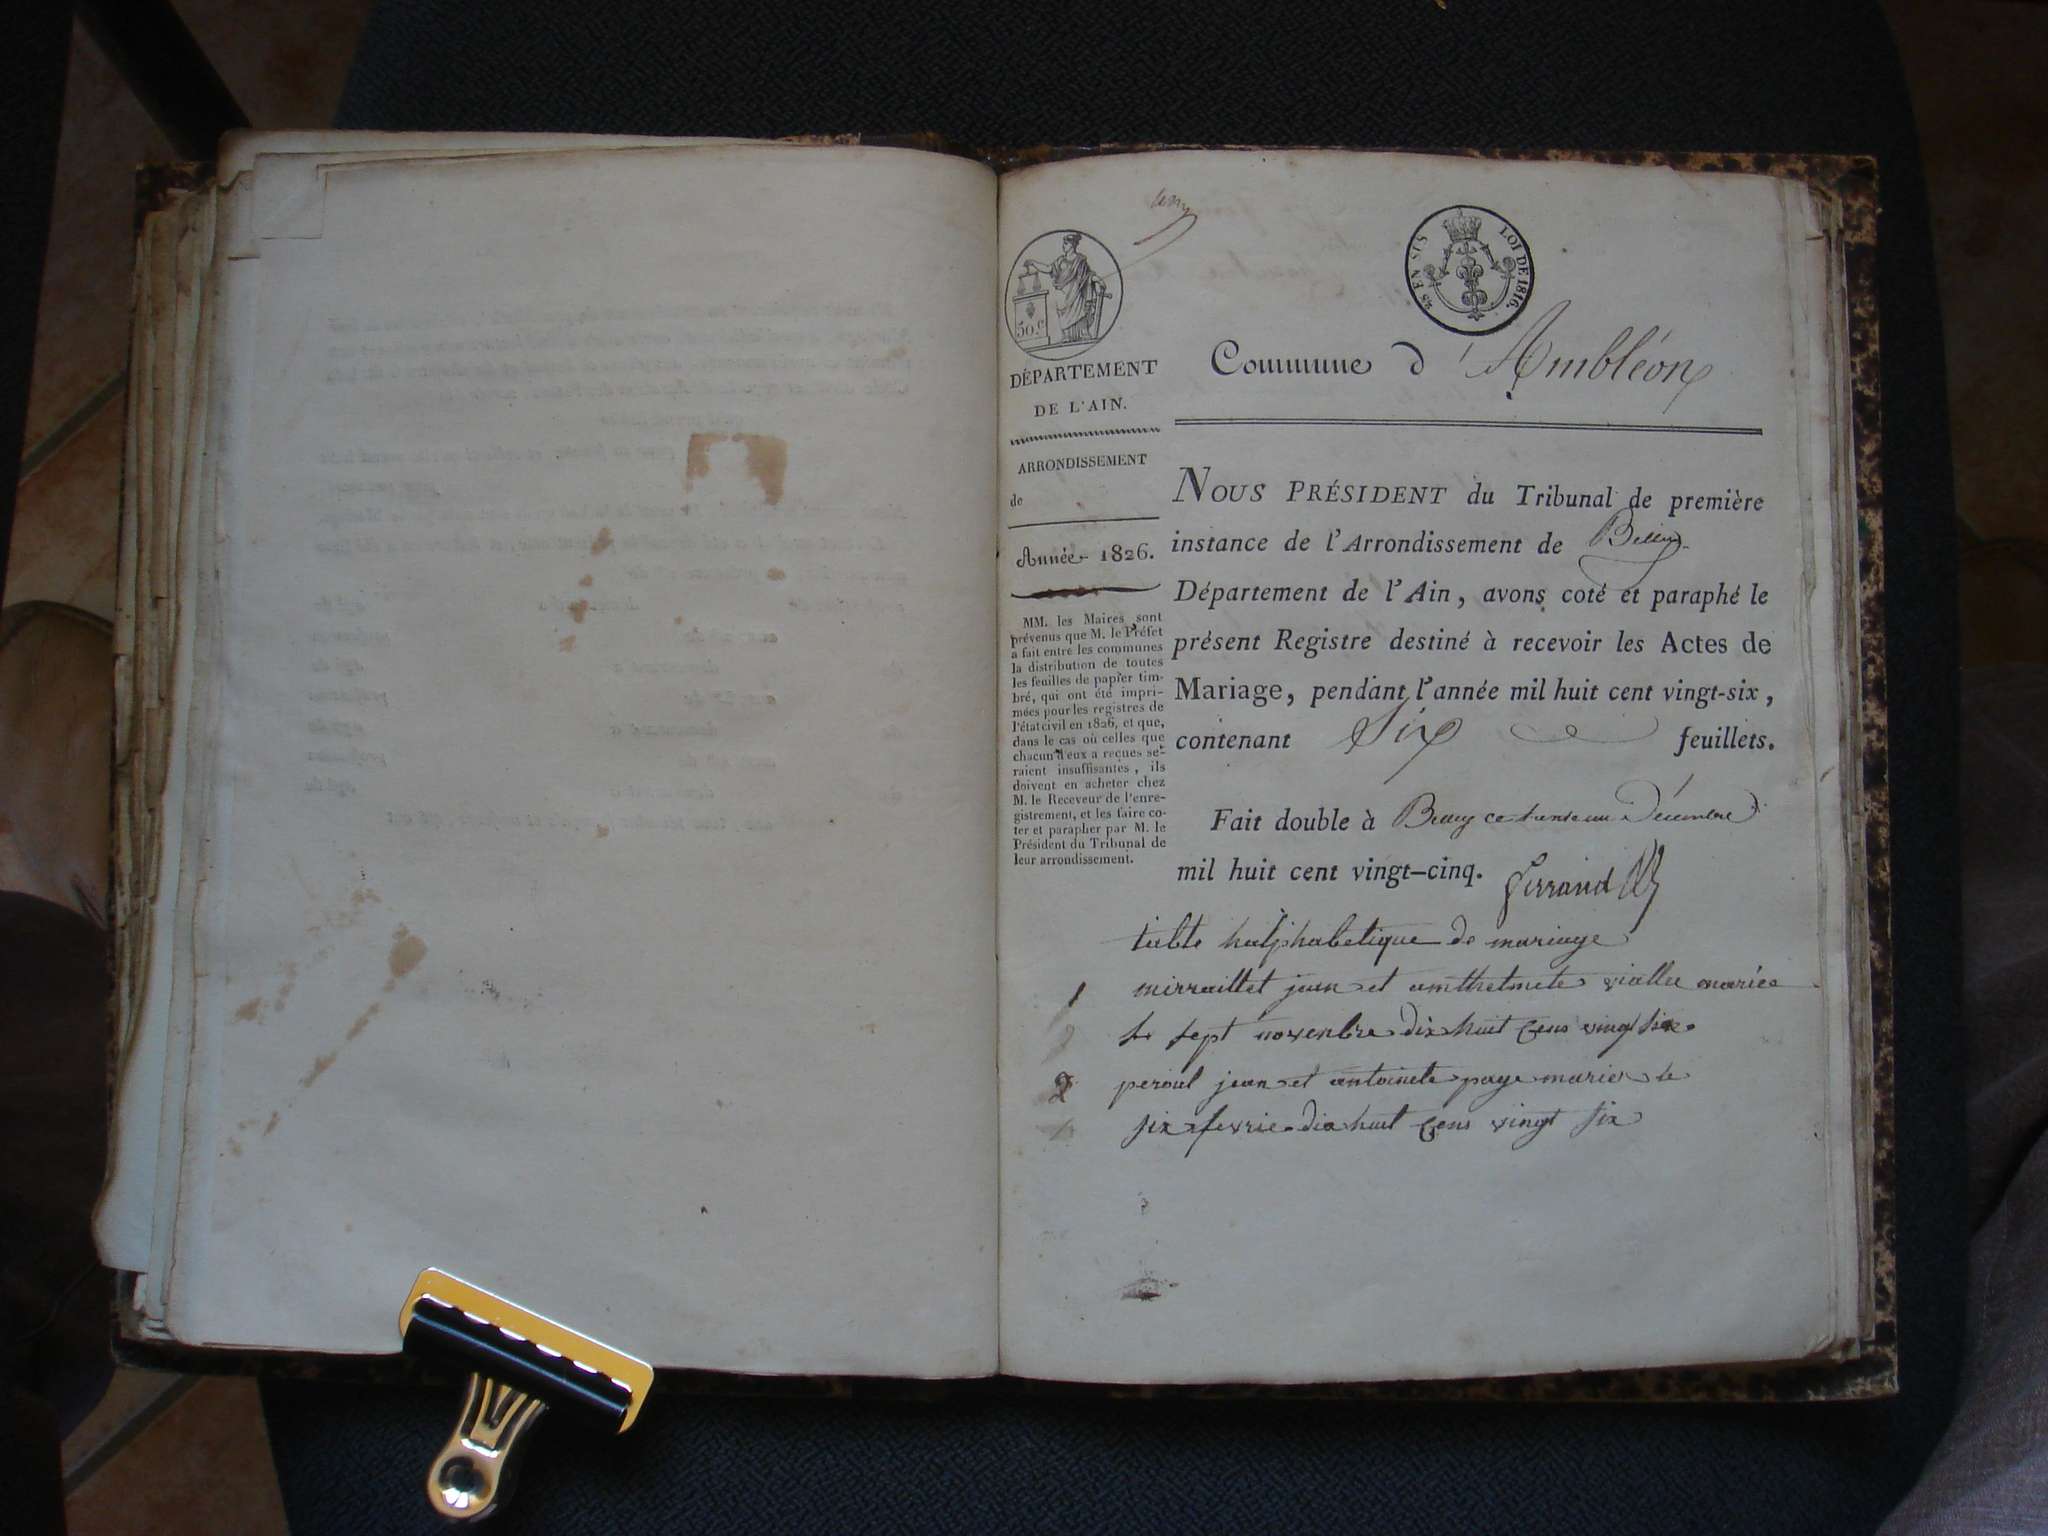 un
50.c
LOI DE 1816.
DÉPARTEMENT
DE L'AIN.
ARRONDISSEMENT
de
Année 1826.
MM. les Maires sont
prévenus que M. le Préfet
a fait entre les communes
la distribution de toutes
les feuilles de papier tim-
bré, qui ont été impri-
mées pour les registres de
l'état civil en 1826, et que,
dans le cas où celles que
chacun d'eux a reçues se-
raient insuffisantes, ils
doivent en acheter chez
M. le Receveur de l'enre-
gistrement, et les faire co-
ter et parapher par M. le
Président du Tribunal de
leur arrondissement.
Commune d'Ambléon
NOUS PRÉSIDENT du Tribunal de première
instance de l'Arrondissement de Belley
Département de l'Ain, avons coté et paraphé le
présent Registre destiné à recevoir les Actes de
Mariage, pendant l'année mil huit cent vingt-six,
contenant Six feuillets.
Fait double à Belley ce trente un Décembre
mil huit cent vingt-cinq. Ferrand
table halphabetique de mariage
1 mirraillet jean et anthelmete viallu mariée
le sept novenbre dix huit cens vingt six
2 peroul jean et antoinete page marier le
six fevrie dix huit cens vingt six